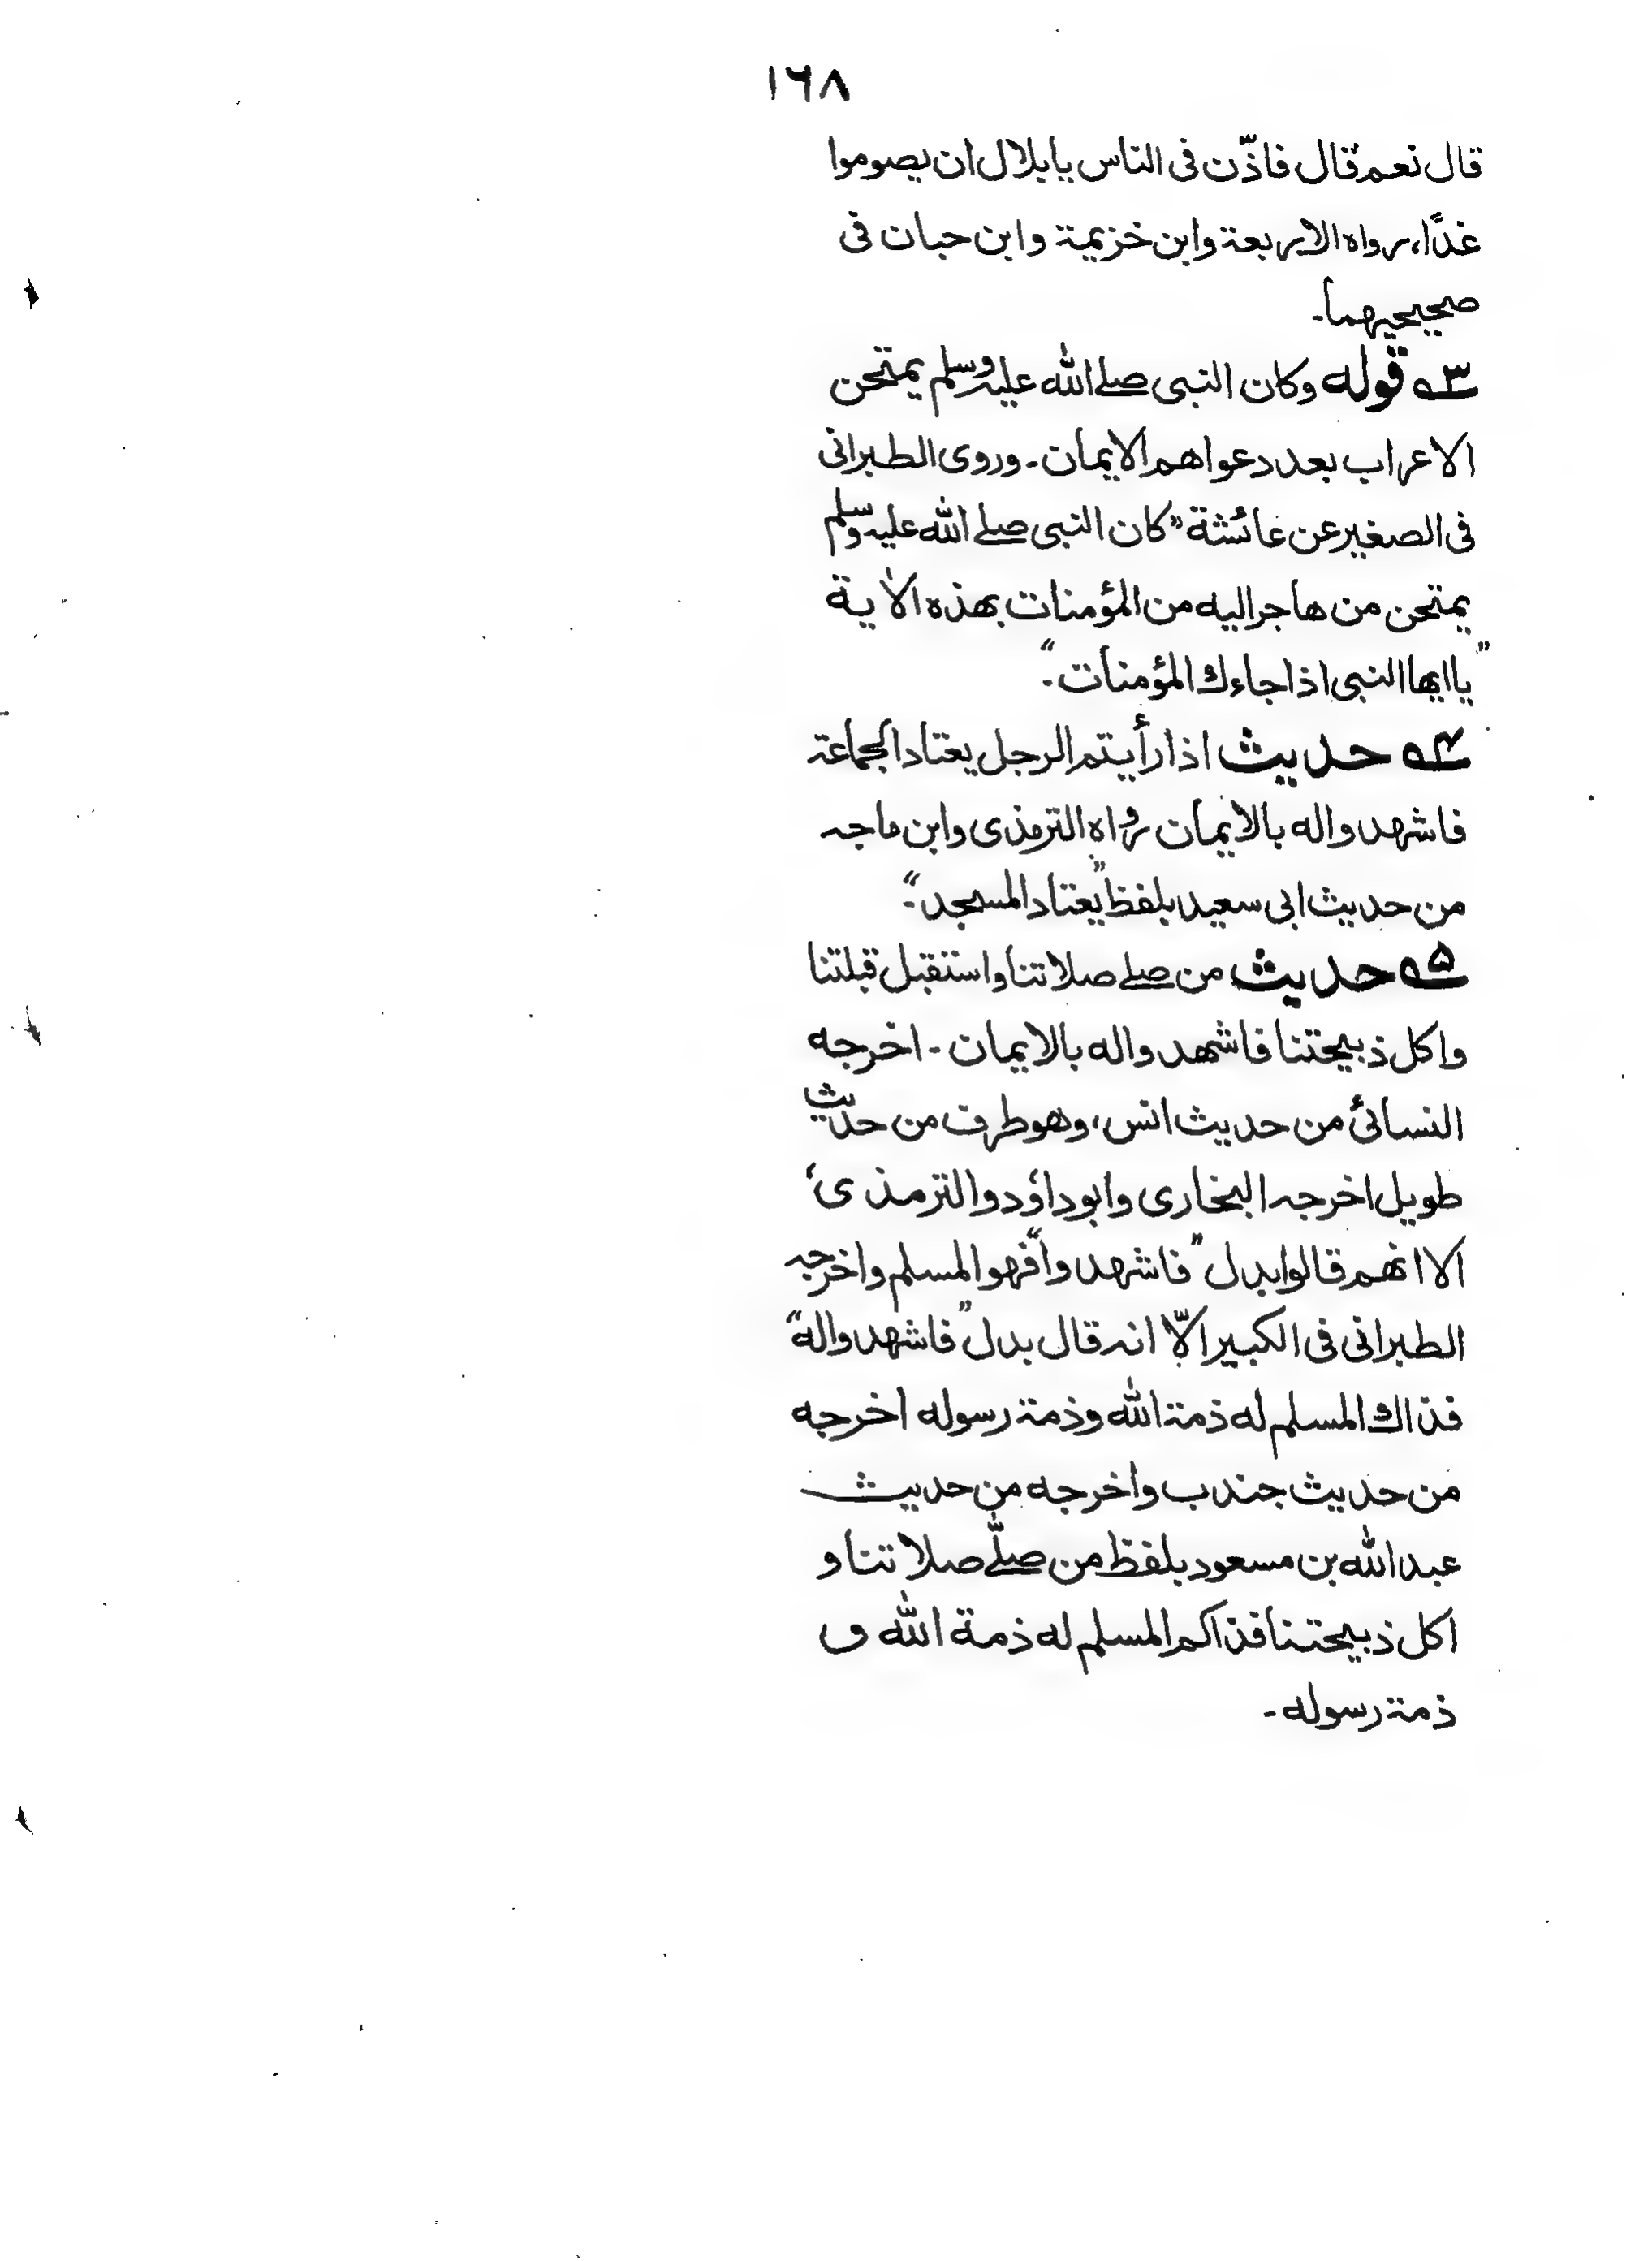 ١٦٨
قال نعم قال فاذّن فى الناس يا بلال ان يصوموا
غدًا، رواه الاربعة وابن خزيمة وابن حبان فى
صحيحيهما-
٣ه قوله وكان النبى صلے الله عليه وسلم يمتحن
الاعراب بعد دعواهم الايمان- وروى الطبرانى
فى الصغير عن عائشة "كان النبى صلے الله عليه وسلم
يمتحن من هاجر اليه من المؤمنات بهذه الاٰية
"يا ايها النبى اذا جاءك المؤمنات"-
۴ه حديث اذا رأيتم الرجل يعتاد الجماعة
فاشهدوا له بالايمان رواه الترمذى وابن ماجه
من حديث ابى سعيد بلفظ "يعتاد المسجد"-
۵ه حديث من صلے صلاتنا واستقبل قبلتنا
واكل ذبيحتنا فاشهدوا له بالايمان- اخرجه
النسائى من حديث انس، وهو طرف من حديث
طويل اخرجه البخارى وابو داؤد والترمذى،
الا انهم قالوا بدل "فاشهدوا" فهو المسلم واخرجه
الطبرانى فى الكبير الّا انه قال بدل "فاشهدوا له"
فذاك المسلم له ذمة الله وذمة رسوله اخرجه
من حديث جندب واخرجه من حديث
عبد الله بن مسعود بلفظ من صلّے صلاتنا و
اكل ذبيحتنا فذاكم المسلم له ذمة الله و
ذمة رسوله-